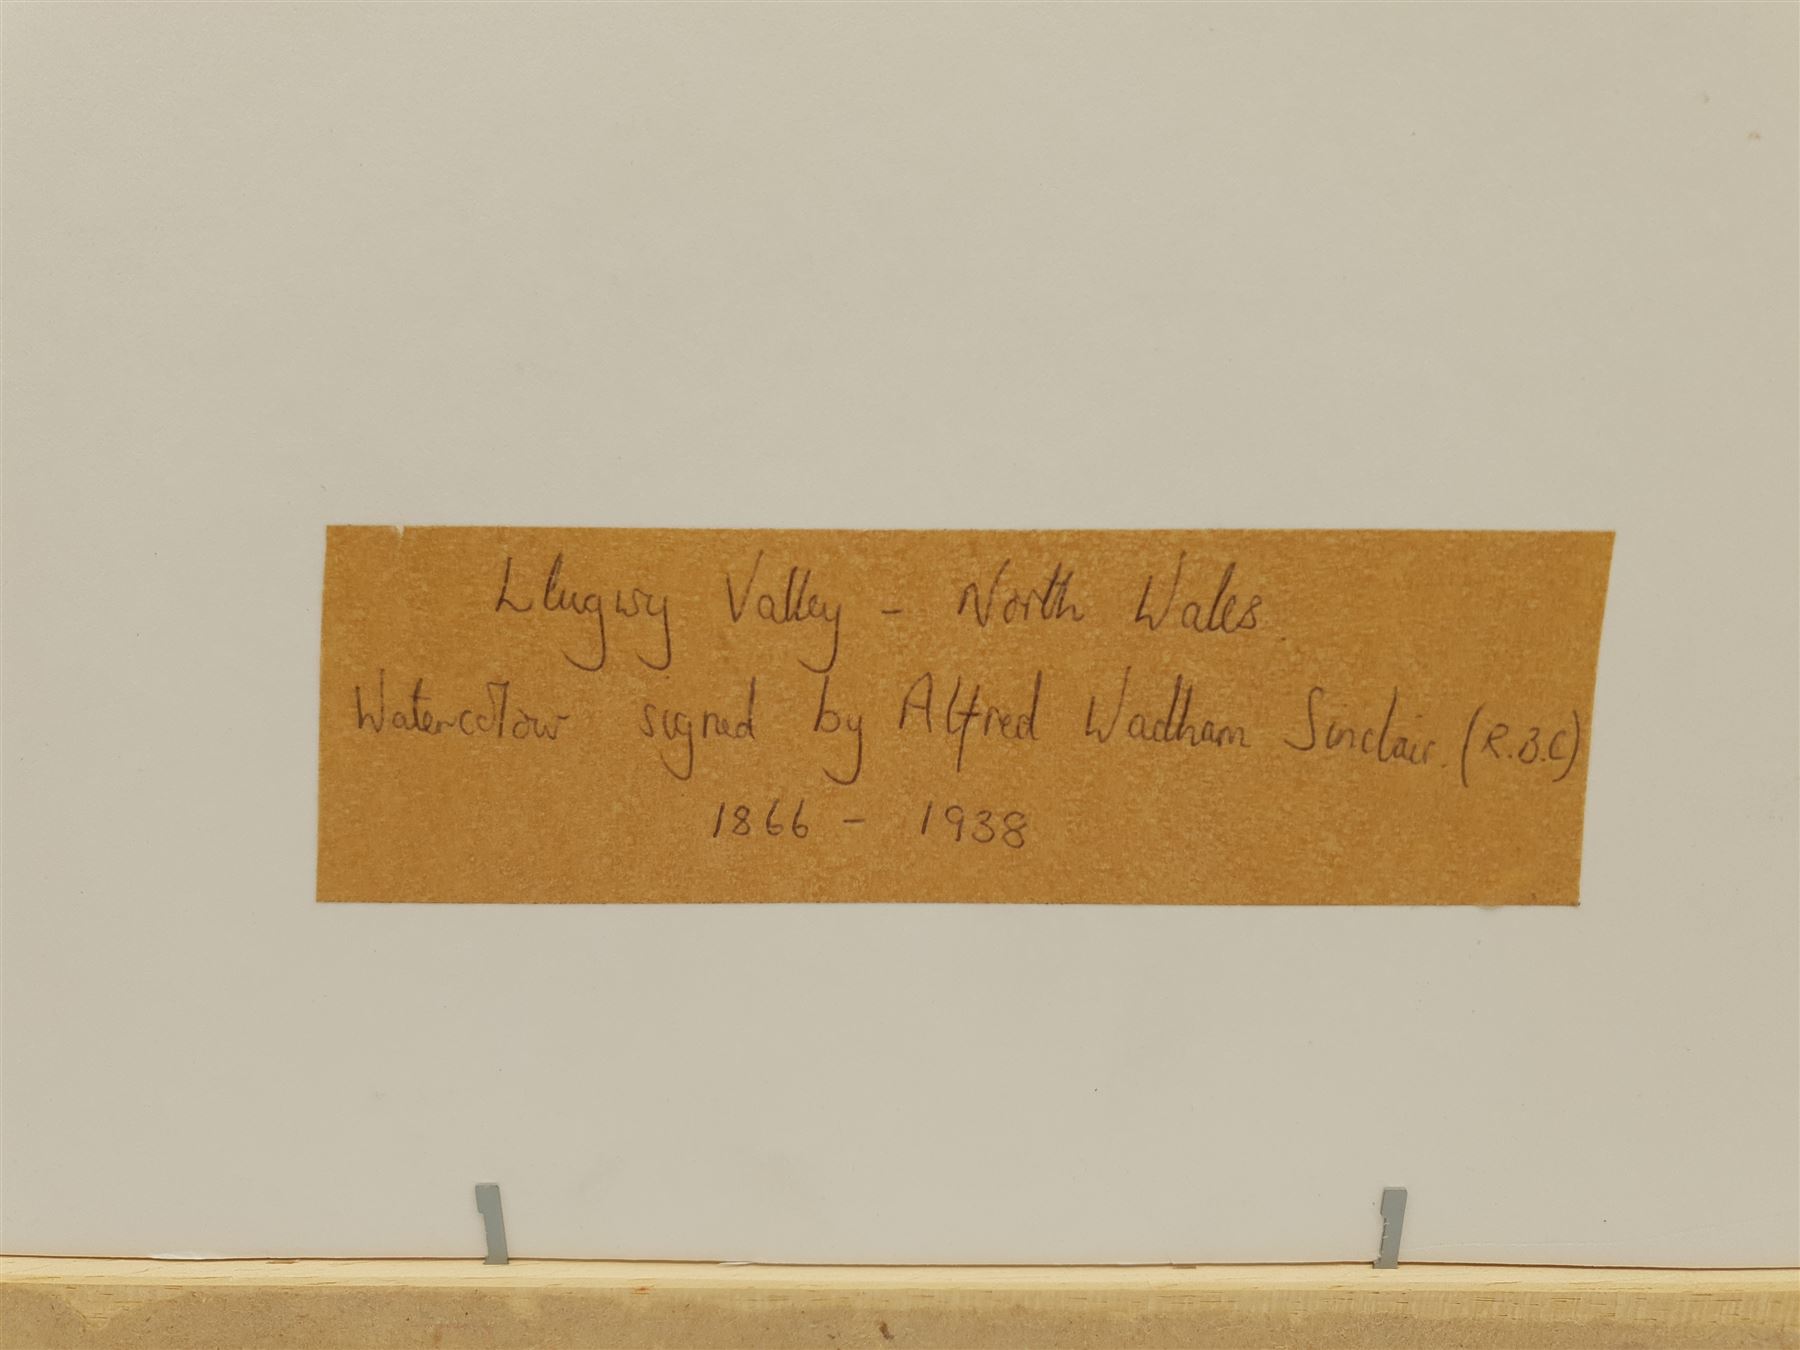 Llugwy Valley - North Wales.
Watercolour signed by Alfred Wadham Sinclair. (R.B.C)
1866 - 1938